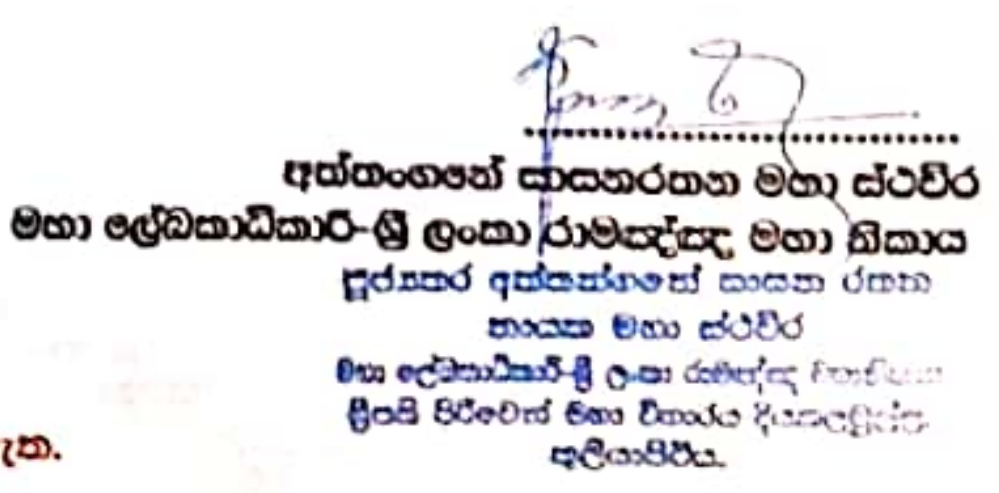 අත්තංගනේ සාසනරතන මහා ස්ථවිර
මහා ලේඛකාධිකාරි-ශ්‍රී ලංකා රාමඤ්ඤ මහා නිකාය
පූජ්‍යතර අත්තන්ගනේ සාසන රතන
නායක මහා ස්ථවිර
මහා ලේඛකාධිකාරි-ශ්‍රී ලංකා රාමඤ්ඤ මහානිකාය
ශ්‍රීපති පිරිවෙන් මහා විහාරය
ඇත.
කුලියාපිටිය.